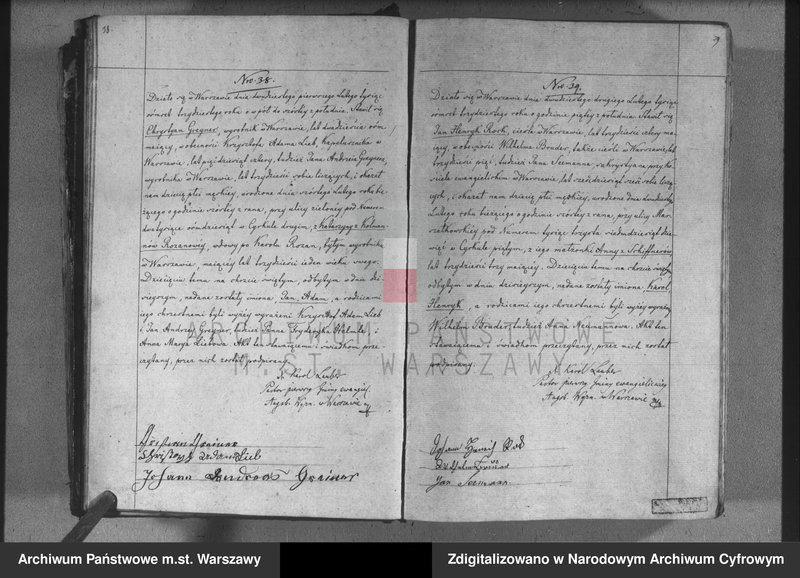 38.
Nro. 38.
Działo się w Warszawie dnia dwudziestego pierwszego Lutego tysiąc
ośmset trzydziestego roku o w pół do szóstej z południa. Stawił się
Chrystyan Greyner, wyrobnik w Warszawie, lat dwadzieścia ośm
mający, w obecności Krzysztofa Adama Lieb, Kapelusznika w
Warszawie, lat pięćdziesiąt cztery, tudzież Jana Andrzeia Greynera,
wyrobnika w Warszawie, lat trzydzieści sobie liczących, i okazał
nam dziecię płci męzkiey, urodzone dnia szóstego Lutego roku bie-
żącego o godzinie szóstey z rana, przy ulicy zielonéy pod Numerem
dwa tysiące ośmdziesiąt w Cyrkule drugim, z Katarzyny z
Rozanowéy, wdowy po Karolu Rozan, byłym wyrobniku
w Warszawie, maiącéy lat trzydzieści ieden wieku swego.
Dziecięciu temu na chrzcie świętym, odbytym w dniu dzi-
sieyszym, nadane zostały imiona Jan, Adam, a rodzicami
iego chrzestnemi byli wyżéy wyrażeni Krzysztof Adam Lieb
i Jan Andrzéy Greyner, tudzież Panna Fryderyka i
Anna Marya Liebowa. Akt ten stawaiącemu i świadkom prze-
czytany, przez nich został podpisany.
X. Karol Lauber
Pastor pierwszy Gminy ewangiel.
Augsb. Wyzn. w Warszawie
Christian Greiner
Christoph Adam Lieb
Johann Andreas Greiner
39
Nro. 39.
Działo się w Warszawie dnia dwudziestego drugiego Lutego tysiąc
ośmset trzydziestego roku o godzinie piątey z południa. Stawił się
Jan Henryk Rock, cieśla w Warszawie, lat trzydzieści cztery ma-
iący, w obecności Wilhelma Bruder, także cieśli w Warszawie, lat
trzydzieści pięć, tudzież Jana Seemanna, zakrystyana przy ko-
ściele ewangielickim w Warszawie, lat sześćdziesiąt sześć sobie liczą-
cych, i okazał nam dziecię płci męzkiey, urodzone dnia
Lutego roku bieżącego o godzinie szóstéy z rana, przy ulicy Mar-
szałkowskiéy pod Numerem tysiąc trzysta siedmdziesiąt dzie-
więć w Cyrkule piątym, z iego małżonki Anny z Schiffnerów
lat trzydzieści trzy maiącéy. Dziecięciu temu na chrzcie świętym
odbytym w dniu dzisieyszym, nadane zostały imiona Karol
Henryk, a rodzicami iego chrzestnemi byli wyżéy wyrażony
Wilhelm Bruder, tudzież Anna Neumannowa. Akt ten
stawaiącemu i świadkom przeczytany, przez nich został
podpisany.
X. Karol Lauber
Pastor pierwszy Gminy ewangielickiéy
Augsb. Wyzn. w Warszawie
Johann Henrich Rock
Jan Seemann
ARCHIWUM PAŃSTWOWE
M.ST. WARSZAWY
Archiwum Państwowe m.st. Warszawy
Zdigitalizowano w Narodowym Archiwum Cyfrowym